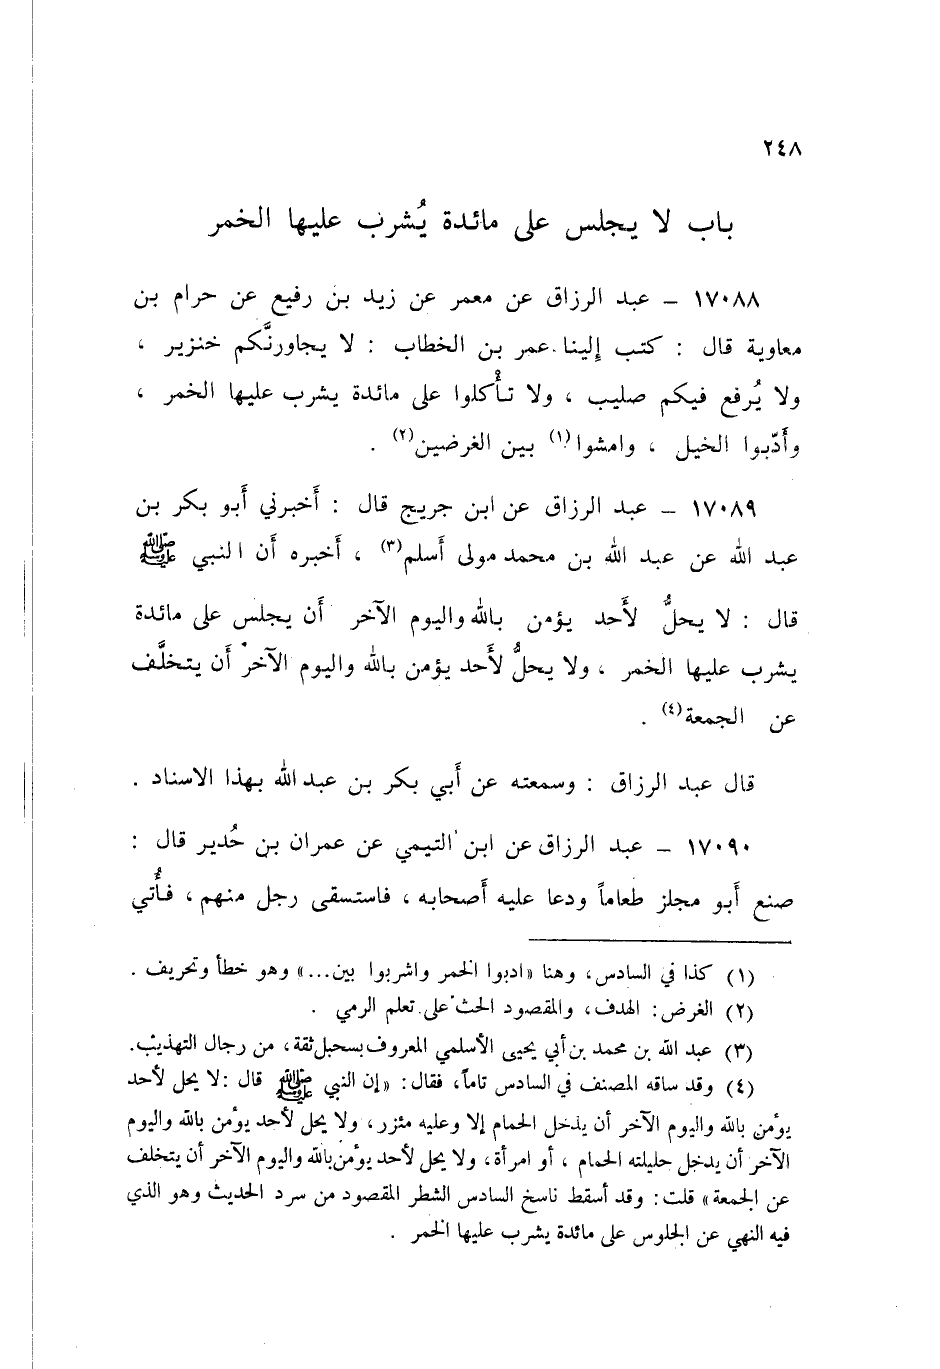 ٢٤٨
باب لا يجلس على مائدة يُشرب عليها الخمر
١٧٠٨٨ – عبد الرزاق عن معمر عن زيد بن رفيع عن حرام بن
معاوية قال : كتب إلينا عمر بن الخطاب : لا يجاورنَّكم خنزير ،
ولا يُرفع فيكم صليب ، ولا تأْكلوا على مائدة يشرب عليها الخمر ،
وأَدّبوا الخيل ، وامشوا(١) بين الغرضين(٢) .
١٧٠٨٩ – عبد الرزاق عن ابن جريج قال : أَخبرني أَبو بكر بن
عبد الله عن عبد الله بن محمد مولى أَسلم(٣) ، أَخبره أَن النبي ﷺ
قال : لا يحلُّ لأَحد يؤمن بالله واليوم الآخر أَن يجلس على مائدة
يشرب عليها الخمر ، ولا يحلُّ لأَحد يؤمن بالله واليوم الآخر أَن يتخلَّف
عن الجمعة(٤) .
قال عبد الرزاق : وسمعته عن أَبي بكر بن عبد الله بهذا الاسناد .
١٧٠٩٠ – عبد الرزاق عن ابن التيمي عن عمران بن حُدير قال :
صنع أَبو مجلز طعاماً ودعا عليه أَصحابه ، فاستسقى رجل منهم ، فأُتي
(١) كذا في السادس، وهنا «ادبوا الخمر واشربوا بين...» وهو خطأ وتحريف .
(٢) الغرض: الهدف، والمقصود الحث على تعلم الرمي .
(٣) عبد الله بن محمد بن أبي يحيى الأسلمي المعروف بسحبل ثقة، من رجال التهذيب.
(٤) وقد ساقه المصنف في السادس تاماً، فقال: «إن النبي ﷺ قال :لا يحل لأحد
يؤمن بالله واليوم الآخر أن يدخل الحمام إلا وعليه مئزر، ولا يحل لأحد يؤمن بالله واليوم
الآخر أن يدخل حليلته الحمام ، أو امرأة، ولا يحل لأحد يؤمن بالله واليوم الآخر أن يتخلف
عن الجمعة» قلت: وقد أسقط ناسخ السادس الشطر المقصود من سرد الحديث وهو الذي
فيه النهي عن الجلوس على مائدة يشرب عليها الخمر .